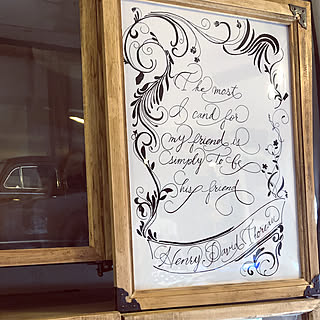 The most
I cand for
my friend is
simply to be
his friend
Henry David Thoreau